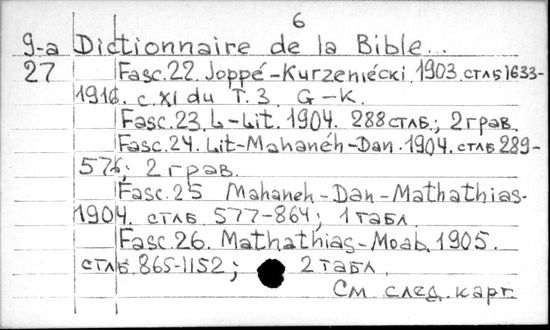 6
9-a Dictionnaire de la Bible...
27 Fasc.22. Joppé-Kurzeniécki. 1903. стлб 1633-
1916. с. XI du T. 3. G-K.
Fasc.23. L-Lit. 1904. 288 стлб.; 2 грав.
Fasc.24. Lit-Mahanéh-Dan. 1904. стлб 289-
576; 2 грав.
Fasc.25 Mahaneh-Dan-Mathathias.
1904. стлб 577-864; 1 табл.
Fasc.26. Mathathias-Moab. 1905.
стлб. 865-1152; 2 табл.
См. след. карт.